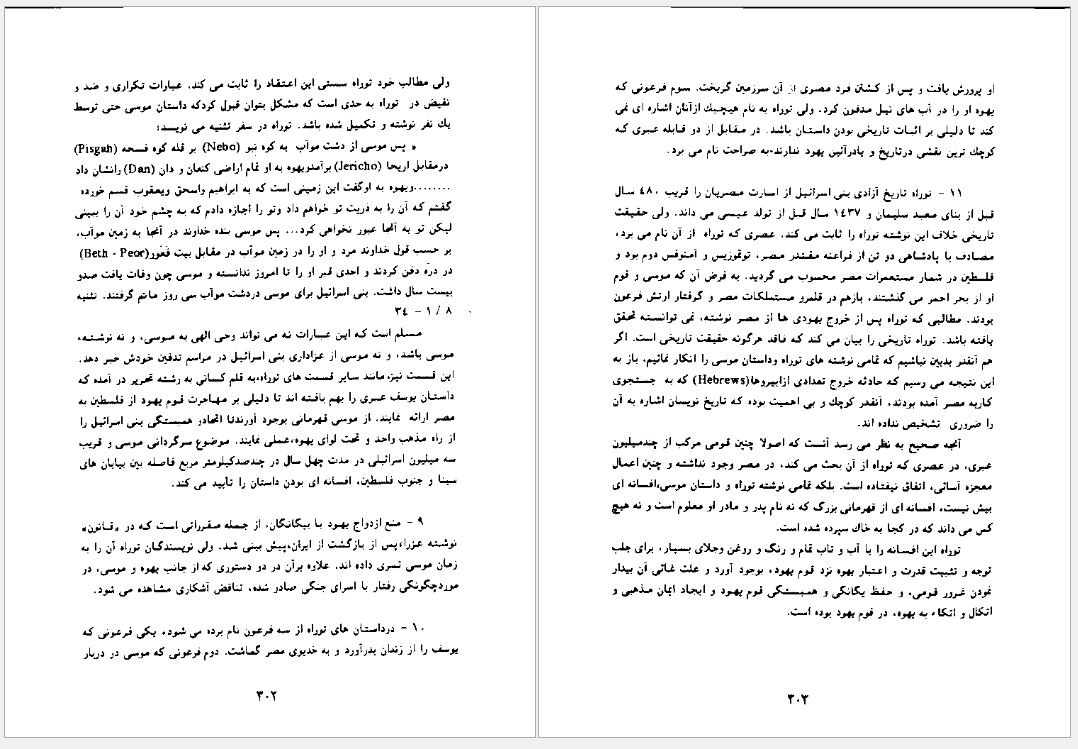 ولی مطالب خود توراه سستی این اعتقاد را ثابت می کند. عبارات تکراری و ضد و
نقیض در توراه به حدی است که مشکل بتوان قبول کردکه داستان موسی حتی توسط
یك نفر نوشته و تکمیل شده باشد. توراه در سفر تثنیه می نویسد:
« پس موسی از دشت موآب به کوه نبو (Nebo) بر قله کوه فسحه (Pisgah)
درمقابل اریحا (Jericho) برآمدویهوه به او تمام اراضی کنعان و دان (Dan) رانشان داد
........ویهوه به اوگفت این زمینی است که به ابراهیم واسحق ویعقوب قسم خورده
گفتم که آن را به ذریت تو خواهم داد وتو را اجازه دادم که به چشم خود آن را ببینی
لیکن تو به آنجا عبور نخواهی کرد... پس موسی بنده خداوند در آنجا به زمین موآب،
بر حسب قول خداوند مرد و او را در زمین موآب در مقابل بیت فغور(Beth - Peor)
در دره دفن کردند و احدی قبر او را تا امروز ندانسته و موسی چون وفات یافت صدو
بیست سال داشت. بنی اسرائیل برای موسی دردشت موآب سی روز ماتم گرفتند. تثنیه
٨ / ١ - ٣٤
مسلم است که این عبارات نه می تواند وحی الهی به موسی، و نه نوشته،
موسی باشد، و نه موسی از عزاداری بنی اسرائیل در مراسم تدفین خودش خبر دهد.
این قسمت نیز،مانند سایر قسمت های توراه،به قلم کسانی به رشته تحریر در آمده که
داستان یوسف عبری را بهم بافته اند تا دلیلی بر مهاجرت قوم یهود از فلسطین به
مصر ارائه نمایند. از موسی قهرمانی بوجود آورندتا اتحادو همبستگی بنی اسرائیل را
از راه مذهب واحد و تحت لوای یهوه،عملی نمایند. موضوع سرگردانی موسی و قریب
سه میلیون اسرائیلی در مدت چهل سال در چندصدکیلومتر مربع فاصله بین بیابان های
سینا و جنوب فلسطین، افسانه ای بودن داستان را تأیید می کند.
٩ - منع ازدواج یهود با بیگانگان، از جمله مقرراتی است که در «قانون»
نوشته عزراء،پس از بازگشت از ایران،پیش بینی شد. ولی نویسندگان توراه آن را به
زمان موسی تسری داده اند. علاوه برآن در دو دستوری که از جانب یهوه و موسی، در
موردچگونگی رفتار با اسرای جنگی صادر شده، تناقض آشکاری مشاهده می شود.
١٠ - درداستان های توراه از سه فرعون نام برده می شود، یکی فرعونی که
یوسف را از زندان بدرآورد و به خدیوی مصر گماشت. دوم فرعونی که موسی در دربار
٣٠٢
او پرورش یافت و پس از کشتن فرد مصری از آن سرزمین گریخت. سوم فرعونی که
یهوه او را در آب های نیل مدفون کرد. ولی توراه به نام هیچیك ازآنان اشاره ای نمی
کند تا دلیلی بر اثبات تاریخی بودن داستان باشد. در مقابل از دو قابله عبری که
کوچك ترین نقشی درتاریخ و یادرآئین یهود ندارند،به صراحت نام می برد.
١١ - توراه تاریخ آزادی بنی اسرائیل از اسارت مصریان را قریب ٤٨٠ سال
قبل از بنای معبد سلیمان و ١٤٣٧ سال قبل از تولد عیسی می داند. ولی حقیقت
تاریخی خلاف این نوشته توراه را ثابت می کند. عصری که توراه از آن نام می برد،
مصادف با پادشاهی دو تن از فراعنه مقتدر مصر، توتموزیس و آمنوفس دوم بود و
فلسطین در شمار مستعمرات مصر محسوب می گردید. به فرض آن که موسی و قوم
او از بحر احمر می گذشتند، بازهم در قلمرو مستملکات مصر و گرفتار ارتش فرعون
بودند. مطالبی که توراه پس از خروج یهودی ها از مصر نوشته، نمی توانسته تحقق
یافته باشد. توراه تاریخی را بیان می کند که فاقد هرگونه حقیقت تاریخی است. اگر
هم آنقدر بدبین نباشیم که تمامی نوشته های توراه وداستان موسی را انکار نمائیم، باز به
این نتیجه می رسیم که حادثه خروج تعدادی ازابیروها(Hebrews) که به جستجوی
کاربه مصر آمده بودند، آنقدر کوچك و بی اهمیت بوده که تاریخ نویسان اشاره به آن
را ضروری تشخیص نداده اند.
آنچه صحیح به نظر می رسد آنست که اصولا چنین قومی مرکب از چندمیلیون
عبری، در عصری که توراه از آن بحث می کند، در مصر وجود نداشته و چنین اعمال
معجزه آسائی، اتفاق نیفتاده است. بلکه تمامی نوشته توراه و داستان موسی،افسانه ای
بیش نیست، افسانه ای از قهرمانی بزرگ که نه نام پدر و مادر او معلوم است و نه هیچ
کس می داند که در کجا به خاك سپرده شده است.
توراه این افسانه را با آب و تاب تمام و رنگ و روغن وجلای بسیار، برای جلب
توجه و تثبیت قدرت و اعتبار یهوه نزد قوم یهود، بوجود آورد و علت غائی آن بیدار
نمودن غرور قومی، و حفظ یگانگی و همبستگی قوم یهود و ایجاد ایمان مذهبی و
اتکال و اتکاء به یهوه، در قوم یهود بوده است.
٣٠٣